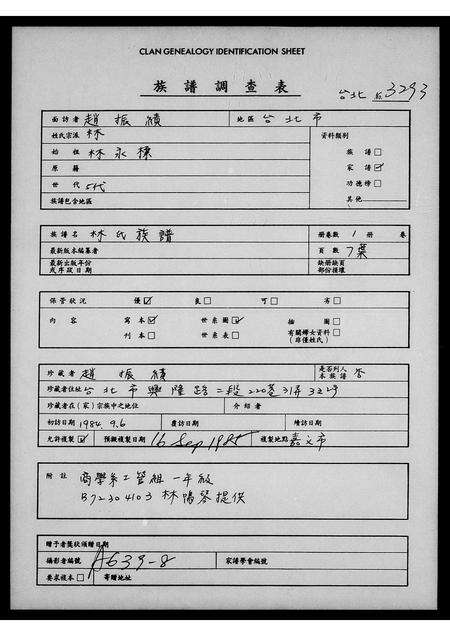 CLAN GENEALOGY IDENTIFICATION SHEET
族譜調查表
台北 № 3293
面訪者 趙振績 地區 台北市
姓氏宗派 林 資料類別
始祖 林永棟 族譜□
原籍 家譜☑
世代 5代 功德榜□
族譜包含地區 其他
族譜名 林氏族譜 冊卷數 1 冊 卷
最新版本編纂者 頁數 7葉
最新出版年份或序跋日期 缺冊缺頁部份損壞
保管狀況 優☑ 良□ 可□ 劣□
內容 寫本☑ 世系圖☑ 插圖□
刊本□ 世系表□ 有關婦女資料(非僅姓氏)□
珍藏者 趙振績 是否列入本族譜 否
珍藏者住址 台北市興隆路二段220巷31弄32號
珍藏者在(家)宗族中之地位 介紹者
初訪日期 1984 9.6 覆訪日期 續訪日期
允許複製☑ 預擬複製日期 16 Sep 1985 複製地點 嘉義市
附註 商學系工管組一年級
B72304103 林陽琴提供
贈予者獎狀頒贈日期
攝影者編號 A639-8 家譜學會編號
要求複本□ 寄贈地址